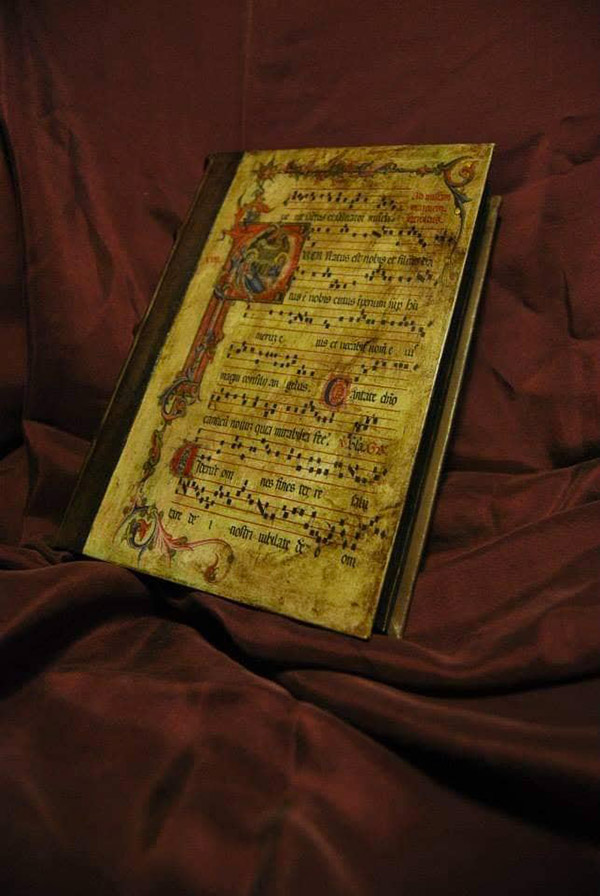 et liberaret
natus est nobis et filius da
tus ē nobis cuius iperium sup hu
meru e ius et uocabit nom e ius
magni consily an gelus. Cantate dño
canticu nouum quia mirabilia fec
iderut om nes fines ter re salu
tare de i nostri iubilate de o om